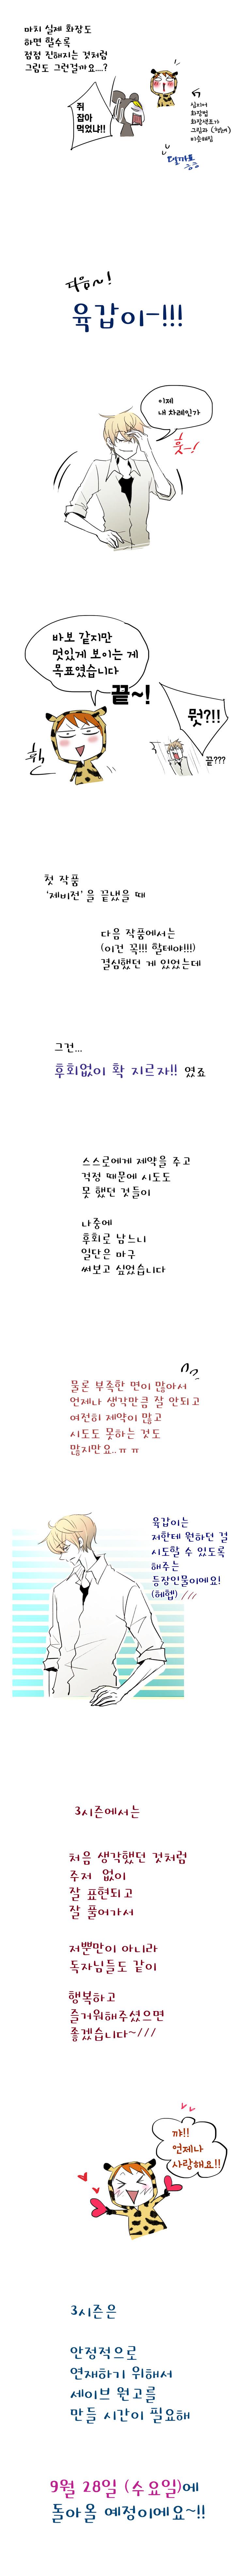 마치 실제 화장도
하면 할수록
점점 진해지는 것처럼
그림도 그런걸까요...?
쥐
잡아
먹었냐!!
심지어
화장법
화장색조가
그림과 (현재)
비슷해짐
다음~!
육갑이-!!!
이제
내 차례인가
훗-!
바보 같지만
멋있게 보이는 게
목표였습니다
끝~!
뭣?!!
휙
끝???
첫 작품
‘제비전’ 을 끝냈을 때
다음 작품에서는
(이건 꼭!!! 할테야!!!)
결심했던 게 있었는데
그건...
후회없이 확 지르자!! 였죠
스스로에게 제약을 주고
걱정 때문에 시도도
못 했던 것들이
나중에
후회로 남느니
일단은 마구
써보고 싶었습니다
물론 부족한 면이 많아서
언제나 생각만큼 잘 안되고
여전히 제약이 많고
시도도 못하는 것도
많지만요..ㅠㅠ
육갑이는
저한테 원하던 걸
시도할 수 있도록
해주는
등장인물이에요!
(헤헷) ///
3시즌에서는
처음 생각했던 것처럼
주저 없이
잘 표현되고
잘 풀어가서
저뿐만이 아니라
독자님들도 같이
행복하고
즐거워해주셨으면
좋겠습니다~///
꺄!!
언제나
사랑해요!!
3시즌은
안정적으로
연재하기 위해서
세이브 원고를
만들 시간이 필요해
9월 28일 (수요일)에
돌아올 예정이에요~!!